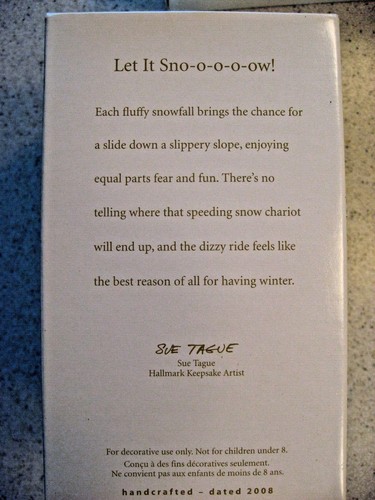 Let It Sno-o-o-o-ow!
Each fluffy snowfall brings the chance for
a slide down a slippery slope, enjoying
equal parts fear and fun. There's no
telling where that speeding snow chariot
will end up, and the dizzy ride feels like
the best reason of all for having winter.
SUE TAGUE
Sue Tague
Hallmark Keepsake Artist
For decorative use only. Not for children under 8.
Conçu à des fins décoratives seulement.
Ne convient pas aux enfants de moins de 8 ans.
handcrafted – dated 2008